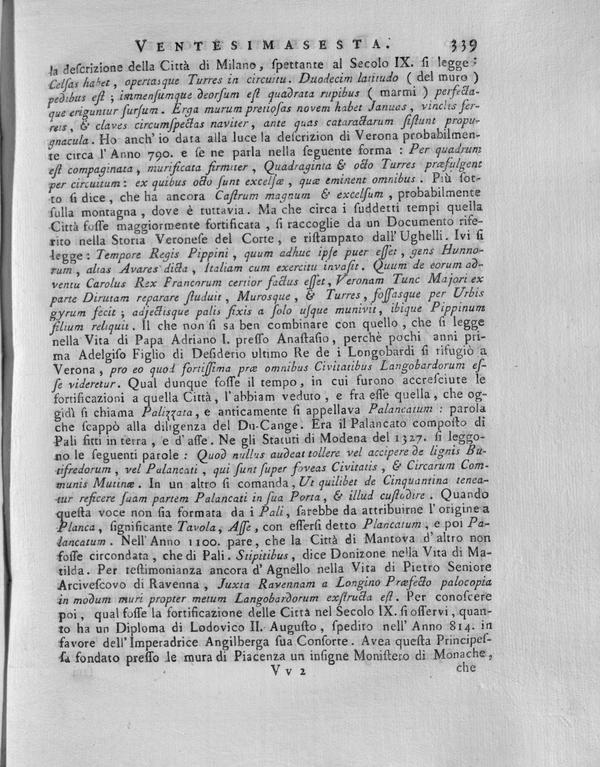 VENTESIMASESTA. 339
la deſcrizione della Città di Milano, ſpettante al Secolo IX. ſi legge:
Celſas habet, opertaſque Turres in circuitu. Duodecim latitudo (del muro)
pedibus eſt; immenſumque deorſum eſt quadrata rupibus (marmi) perfecta-
que eriguntur ſurſum. Erga murum pretioſas novem habet Januas, vinclis fer-
reis, & claves circumſpectas naviter, ante quas cataractarum ſiſtunt propu-
gnacula. Ho anch'io data alla luce la deſcrizion di Verona probabilmen-
te circa l'Anno 790. e ſe ne parla nella ſeguente forma: Per quadrum
eſt compaginata, murificata firmiter, Quadraginta & octo Turres præfulgent
per circuitum: ex quibus octo ſunt excelſæ, quæ eminent omnibus. Più ſot-
to ſi dice, che ha ancora Caſtrum magnum & excelſum, probabilmente
ſulla montagna, dove è tuttavia. Ma che circa i ſuddetti tempi quella
Città foſſe maggiormente fortificata, ſi raccoglie da un Documento rife-
rito nella Storia Veroneſe del Corte, e riſtampato dall'Ughelli. Ivi ſi
legge: Tempore Regis Pippini, quum adhuc ipſe puer eſſet, gens Hunno-
rum, alias Avares dicta, Italiam cum exercitu invaſit. Quum de eorum ad-
ventu Carolus Rex Francorum certior factus eſſet, Veronam Tunc Majori ex
parte Dirutam reparare ſtuduit, Muroſque, & Turres, foſſaſque per Urbis
gyrum fecit; adjectiſque palis fixis a ſolo uſque munivit, ibique Pippinum
filium reliquit. Il che non ſi ſa ben combinare con quello, che ſi legge
nella Vita di Papa Adriano I. preſſo Anaſtaſio, perchè pochi anni pri-
ma Adelgiſo Figlio di Deſiderio ultimo Re de i Longobardi ſi rifugiò a
Verona, pro eo quod fortiſſima præ omnibus Civitatibus Langobardorum eſ-
ſe videretur. Qual dunque foſſe il tempo, in cui furono accreſciute le
fortificazioni a quella Città, l'abbiam veduto, e fra eſſe quella, che og-
gidì ſi chiama Palizzata, e anticamente ſi appellava Palancatum: parola
che ſcappò alla diligenza del Du-Cange. Era il Palancato compoſto di
Pali fitti in terra, e d'aſſe. Ne gli Statuti di Modena del 1327. ſi leggo-
no le ſeguenti parole: Quod nullus audeat tollere vel accipere de lignis Bu-
tifredorum, vel Palancati, qui ſunt ſuper foveas Civitatis, & Circarum Com-
munis Mutinæ. In un altro ſi comanda, Ut quilibet de Cinquantina tenea-
tur reficere ſuam partem Palancati in ſua Porta, & illud cuſtodire. Quando
queſta voce non ſia formata da i Pali, ſarebbe da attribuirne l'origine a
Planca, ſignificante Tavola, Aſſe, con eſſerſi detto Plancatum, e poi Pa-
lancatum. Nell'Anno 1100. pare, che la Città di Mantova d'altro non
foſſe circondata, che di Pali. Stipitibus, dice Donizone nella Vita di Ma-
tilda. Per teſtimonianza ancora d'Agnello nella Vita di Pietro Seniore
Arciveſcovo di Ravenna, Juxta Ravennam a Longino Præfecto palocopia
in modum muri propter metum Langobardorum exſtructa eſt. Per conoſcere
poi, qual foſſe la fortificazione delle Città nel Secolo IX. ſi oſſervi, quan-
to ha un Diploma di Lodovico II. Auguſto, ſpedito nell'Anno 814. in
favore dell'Imperadrice Angilberga ſua Conſorte. Avea queſta Principeſ-
ſa fondato preſſo le mura di Piacenza un inſigne Moniſtero di Monache,
V v 2 che